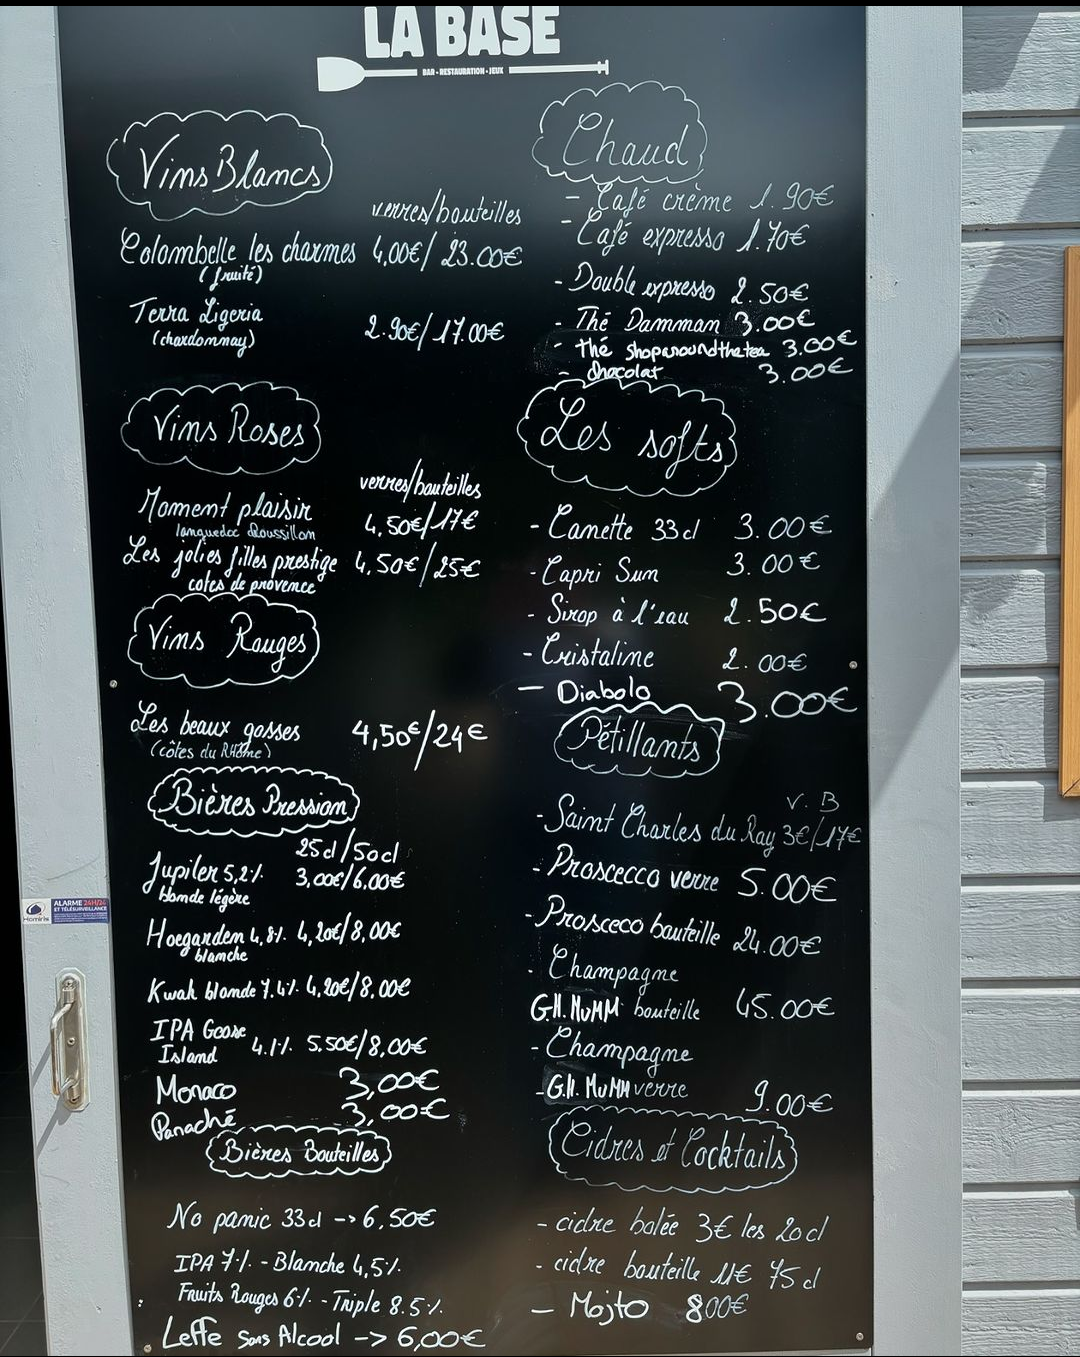 LA BASE
BAR • RESTAURATION • JEUX
Vins Blancs
verres/bouteilles
Colombelle les charmes 4,00€/ 23.00€
(fruité)
Terra Ligeria 2.90€/ 17.00€
(chardonnay)
Vins Roses
verres/bouteilles
Moment plaisir 4,50€/17€
languedoc Roussillon
Les jolies filles prestige 4,50€/25€
cotes de provence
Vins Rouges
Les beaux gosses 4,50€/24€
(côtes du Rhône)
Bières Pression
25cl/50cl
Jupiler 5,2% 3,00€/6,00€
blonde légère
Hoegarden 4,8% 4,20€/8,00€
blanche
Kwak blonde 7.4% 4,20€/8.00€
IPA Goose
Island 4.1% 5.50€/8,00€
Monaco 3,00€
Panaché 3,00€
Bières Bouteilles
No panic 33cl -> 6,50€
IPA 7% - Blanche 4,5%
Fruits Rouges 6% - Triple 8.5%
Leffe Sans Alcool -> 6,00€
Chaud
- Café crème 1.90€
- Café expresso 1.70€
- Double expresso 2.50€
- Thé Damman 3.00€
- thé shoparoundthetea 3.00€
- chocolat 3.00€
Les softs
- Canette 33cl 3.00€
- Capri Sun 3.00€
- Sirop à l'eau 2.50€
- Cristaline 2.00€
- Diabolo 3.00€
Pétillants
V. B
- Saint Charles du Ray 3€/17€
- Proscecco verre 5.00€
- Prosceco bouteille 24.00€
- Champagne
G.H. MuMM bouteille 45.00€
- Champagne
- G.H. MuMM verre 9.00€
Cidres et Cocktails
- cidre bolée 3€ les 20cl
- cidre bouteille 11€ 75cl
- Mojto 8.00€
Homiris
ALARME 24H/24
ET TÉLÉSURVEILLANCE